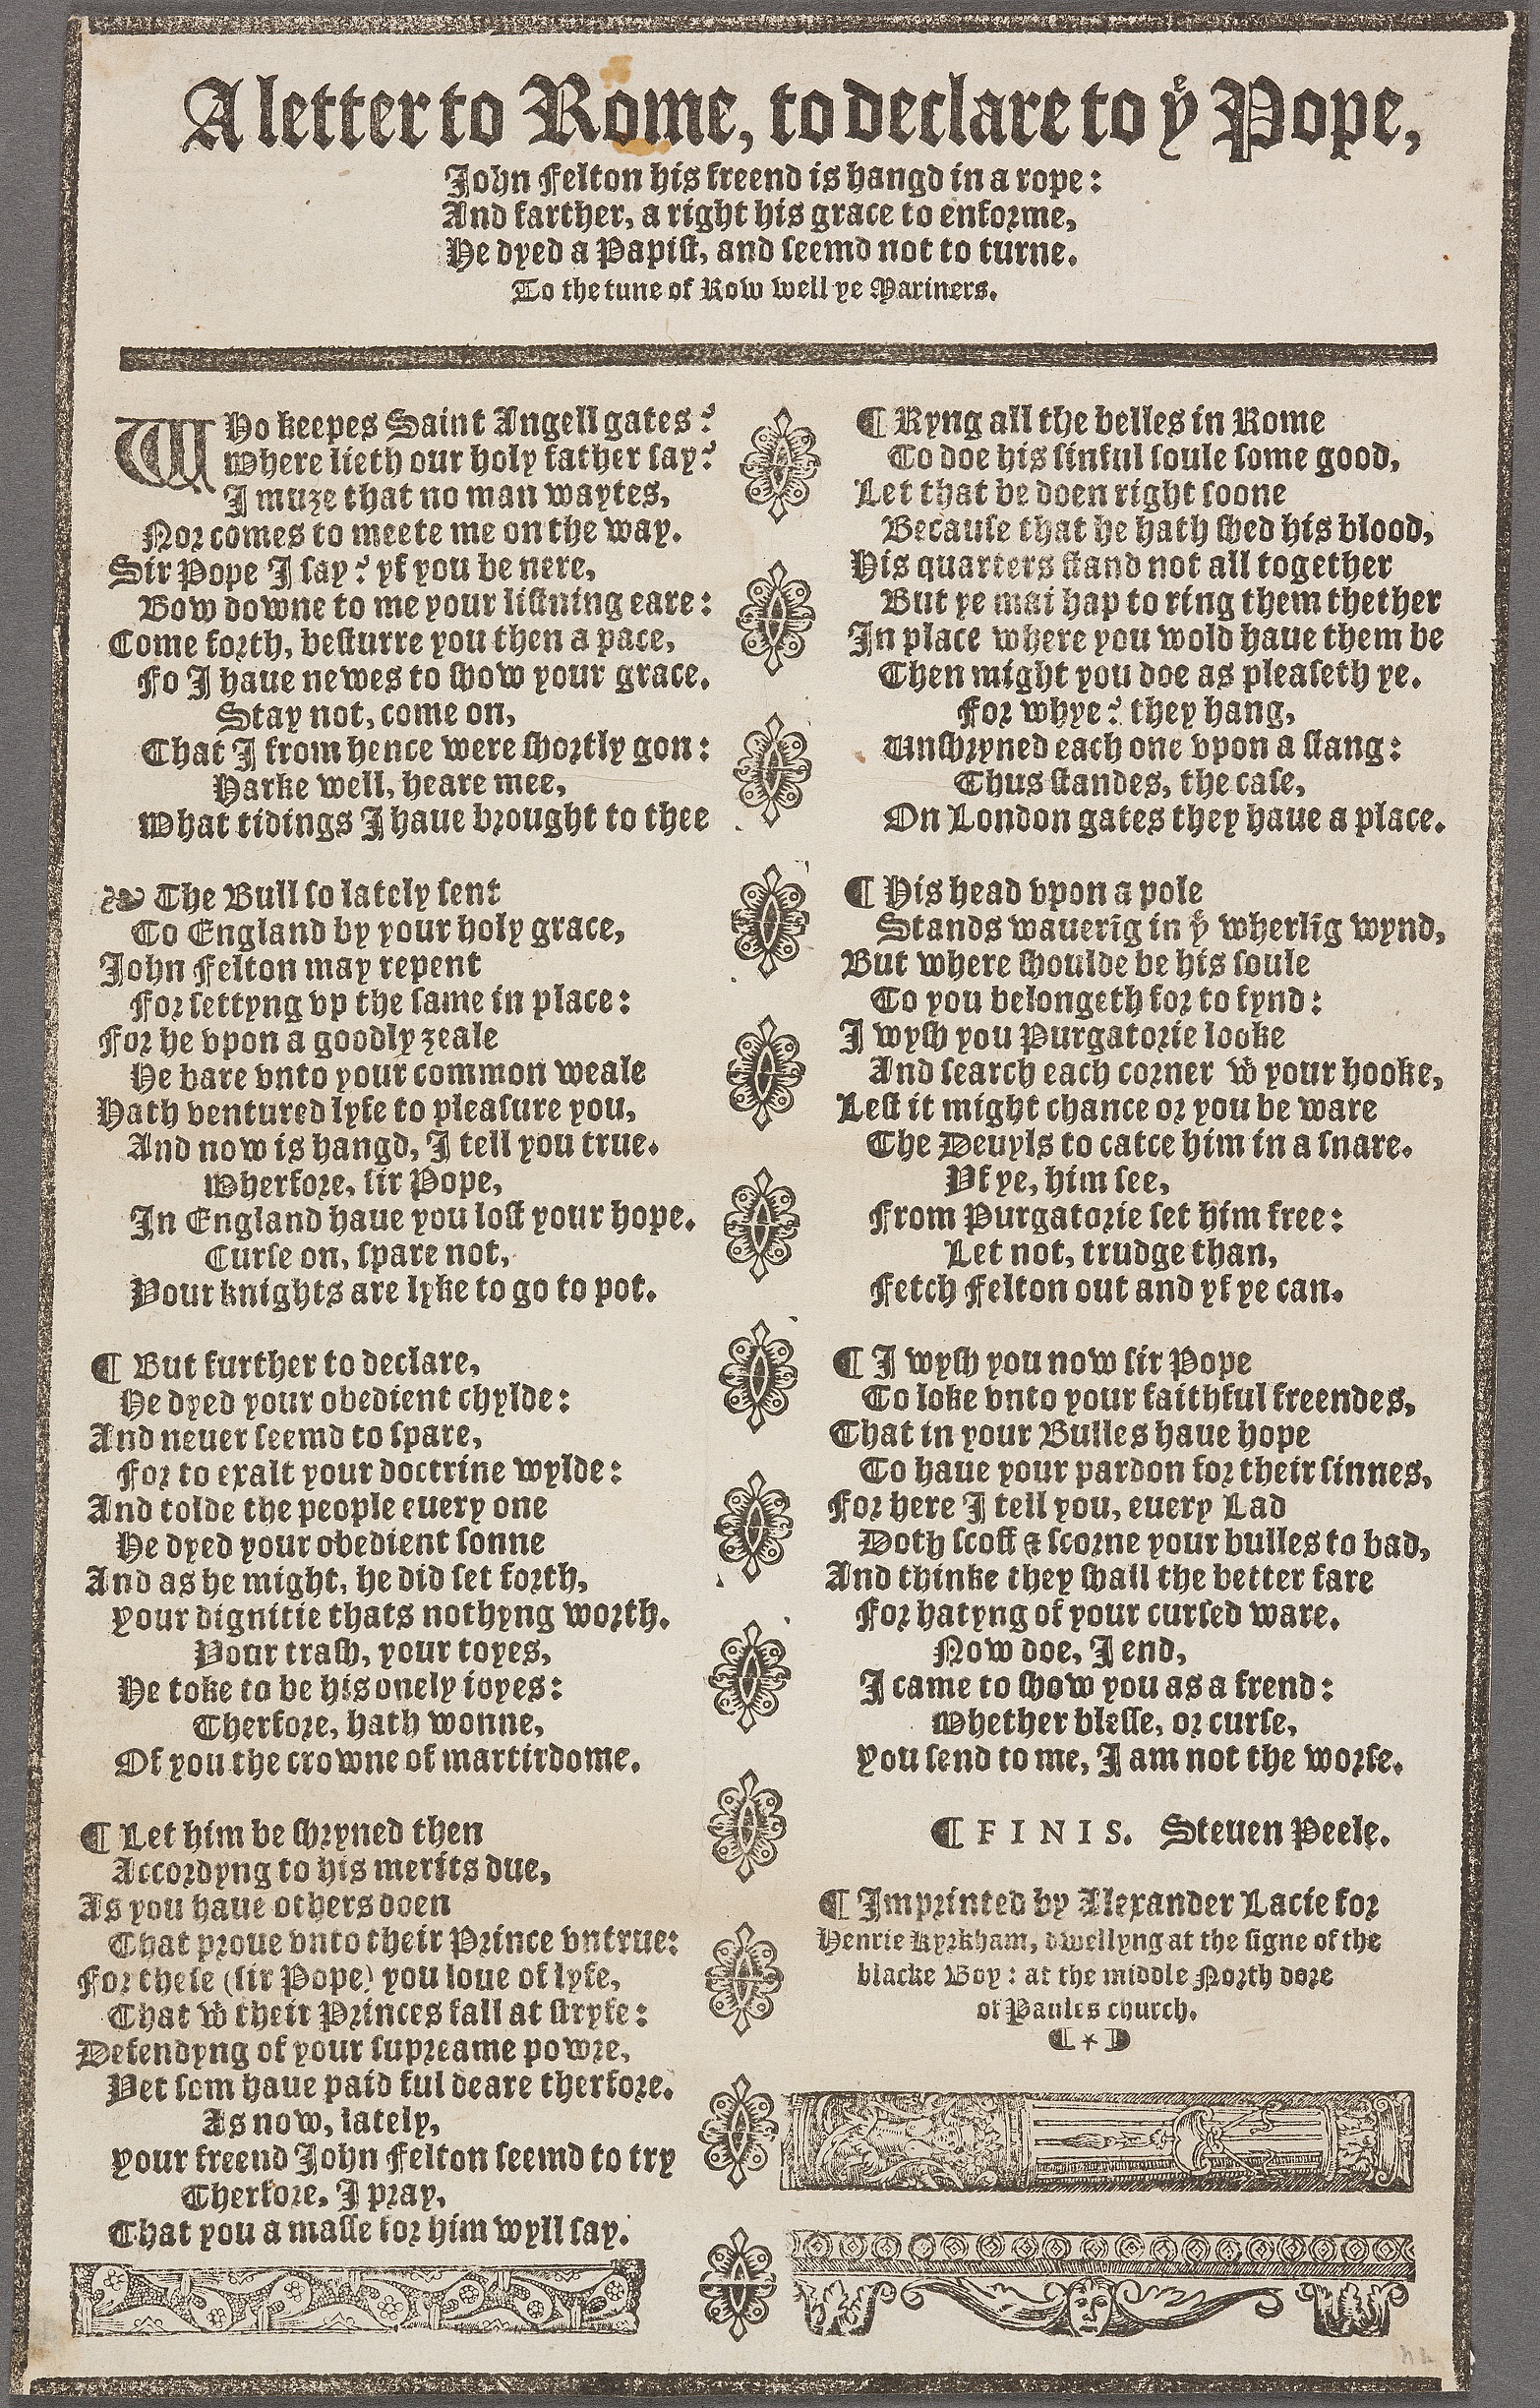 A letter to Rome, to declare to yͤ Pope,
John Felton his freend is hangd in a rope:
And farther, a right his grace to enforme,
He dyed a Papist, and seemd not to turne.
To the tune of Row well ye Mariners.
WHo keepes Saint Angell gates?
Where lieth our holy father say?
I muze that no man waytes,
Nor comes to meete me on the way.
Sir Pope I say? yf you be nere,
Bow downe to me your listning eare:
Come forth, besturre you then a pace,
Fo I haue newes to show your grace.
Stay not, come on,
That I from hence were shortly gon:
Harke well, heare mee,
What tidings I haue brought to thee
❧ The Bull so lately sent
To England by your holy grace,
John Felton may repent
For settyng vp the same in place:
For he vpon a goodly zeale
He bare vnto your common weale
Hath ventured lyfe to pleasure you,
And now is hangd, I tell you true.
Wherfore, sir Pope,
In England haue you lost your hope.
Curse on, spare not,
Your knights are lyke to go to pot.
¶ But further to declare,
He dyed your obedient chylde:
And neuer seemd to spare,
For to exalt your doctrine wylde:
And tolde the people euery one
He dyed your obedient sonne
And as he might, he did set forth,
your dignitie thats nothyng worth.
Your trash, your toyes,
He toke to be his onely ioyes:
Therfore, hath wonne,
Of you the crowne of martirdome.
¶ Let him be shryned then
Accordyng to his merits due,
As you haue others doen
That proue vnto their Prince vntrue:
For these (sir Pope) you loue of lyfe,
That wͭ their Princes fall at stryfe:
Defendyng of your supreame powre,
Yet som haue paid ful deare therfore.
As now, lately,
your freend John Felton seemd to try
Therfore, I pray,
That you a masse for him wyll say.
¶ Ryng all the belles in Rome
To doe his sinful soule some good,
Let that be doen right soone
Because that he hath shed his blood,
His quarters stand not all together
But ye mai hap to ring them thether
In place where you wold haue them be
Then might you doe as pleaseth ye.
For whye? they hang,
Unshryned each one vpon a stang:
Thus standes, the case,
On London gates they haue a place.
¶ His head vpon a pole
Stands wauerīg in yͤ wherlīg wynd,
But where shoulde be his soule
To you belongeth for to fynd:
I wysh you Purgatorie looke
And search each corner wͭ your hooke,
Lest it might chance or you be ware
The Deuyls to catce him in a snare.
Yf ye, him see,
From Purgatorie set him free:
Let not, trudge than,
Fetch Felton out and yf ye can.
¶ I wysh you now sir Pope
To loke vnto your faithful freendes,
That in your Bulles haue hope
To haue your pardon for their sinnes,
For here I tell you, euery Lad
Doth scoff & scorne your bulles to bad,
And thinke they shall the better fare
For hatyng of your cursed ware.
Now doe, I end,
I came to show you as a frend:
Whether blesse, or curse,
you send to me, I am not the worse.
¶ FINIS. Steuen Peele.
¶ Imprinted by Alexander Lacie for
Henrie Kyrkham, dwellyng at the signe of the
blacke Boy: at the middle North dore
of Paules church.